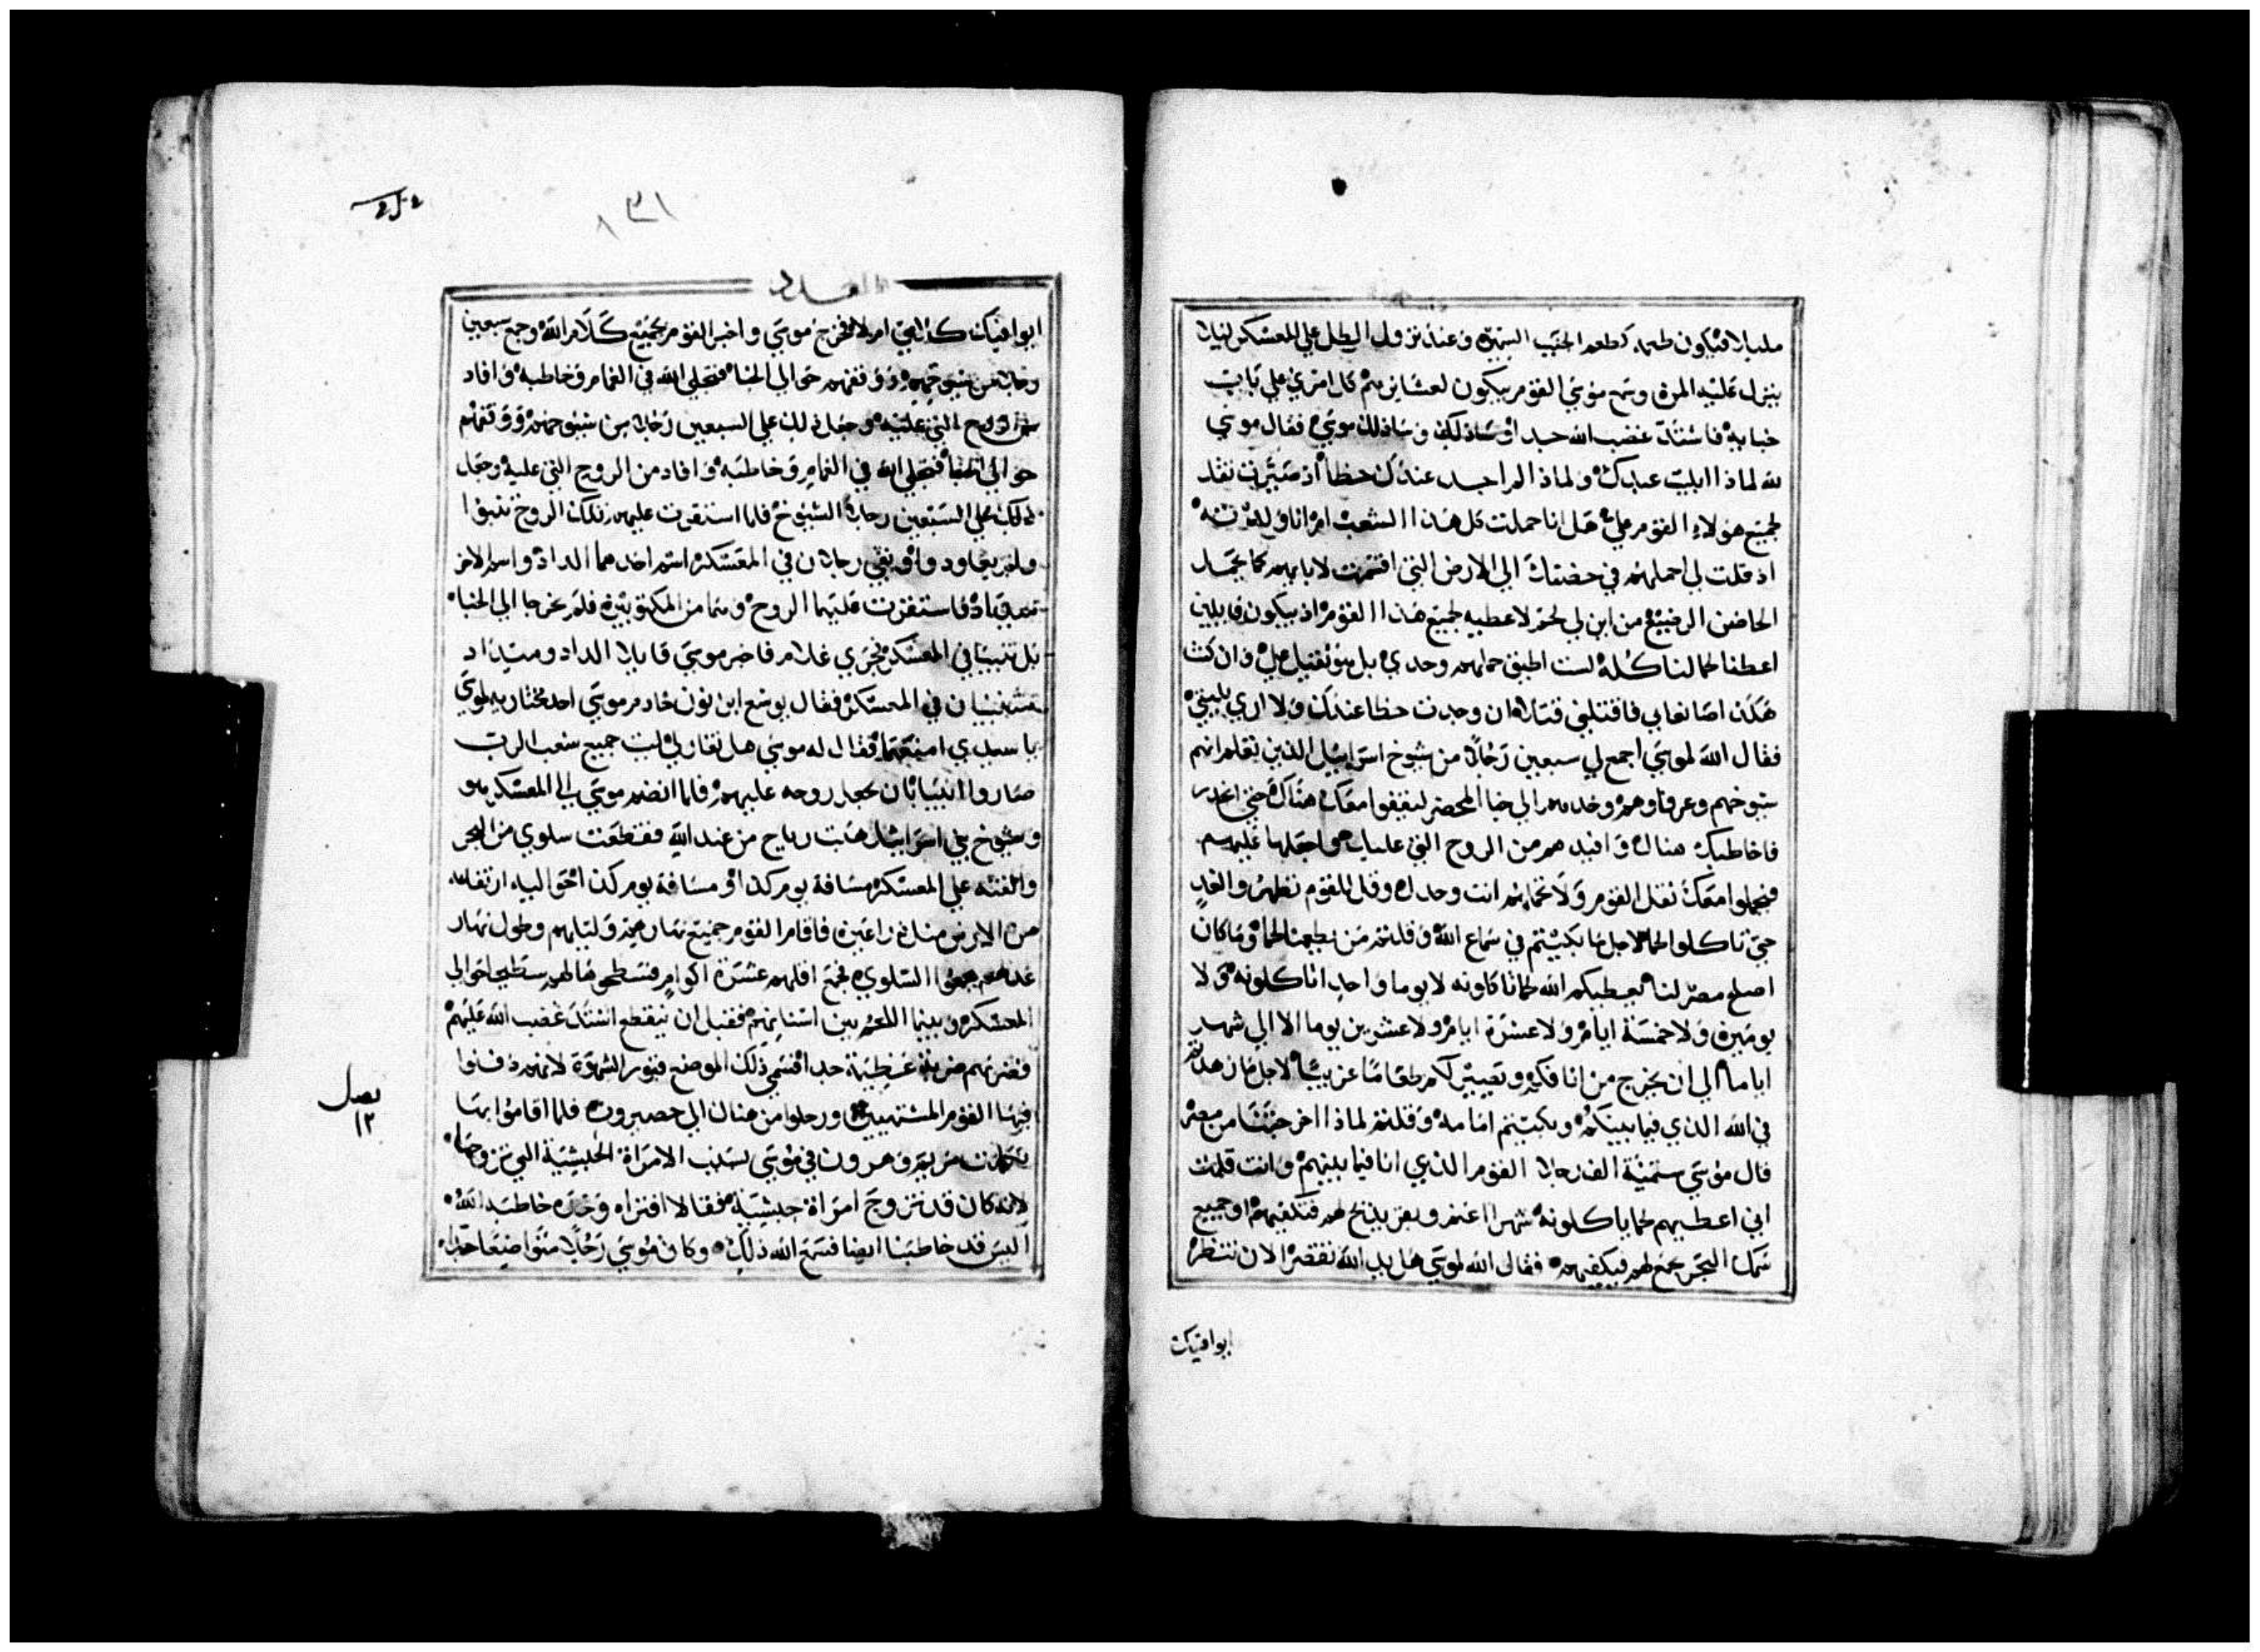 مليلا فيكون طعمه كطعم الحبيب السيرة وعند نزول الطل علي المعسكر ليلا
ينزل عليه المن وسمع موسي القوم يبكون لعشايرهم كل امري علي باب
خبايه فاشتد غضب الله جدا وساذلك وساذلك موسي فقال موسي
لله لماذا ابليت عبدك ولماذا لم اجد عندك حظا اذ صيرت ثقل
جميع هولاء القوم علي هل انا حملت كل هذا الشعب ام انا ولدته
اذ قلت لي احملهم في حضنك الي الارض التي اقسمت لابايهم كما يحمل
الحاضن الرضيع من اين لي لحم لاعطيه لجميع هذا القوم اذ يبكون قايلين
اعطنا لحما لناكله لست اطيق حملهم وحدي بل هو ثقيل علي وان كنت
هكذا صانعا بي فاقتلني قتلا ان وجدت حظا عندك ولا اري بليتي
فقال الله لموسي اجمع لي سبعين رجلا من شيوخ اسراييل الذين تعلم انهم
شيوخهم وعرفاوهم وخدمهم الي خبا المحضر ليقفوا معك هناك حتي اتحدر
فاخاطبك هناك وافيدهم من الروح التي عليك واجعلها عليهم
فيحملوا معك ثقل القوم ولا تحملهم انت وحدك وقل للقوم تطهروا لغد
حتي تاكلوا لحما لاجل ما بكيتم في سماع الله وقلتم من يطعمنا لحما وما كان
اصلح مصر لنا يعطيكم الله لحما تاكلونه لا يوما واحدا تاكلونه ولا
يومين ولا خمسة ايام ولا عشرة ايام ولا عشرين يوما الا الي شهر
اياما الي ان يخرج من انافكم ويصير لكم طعاما غريبا لاجل ما زهدتم
في الله الذي فيما بينكم وبكيتم امامه وقلتم لماذا اخرجتنا من مصر
قال موسي ستمية الف رجلا القوم الذي انا فيما بينهم وانت قلت
اني اعطيهم لحما ياكلونه شهرا اغنم وبقر يذبح لهم فتكفيهم او جميع
سمك البحر يجمع لهم فيكفيهم فقال الله لموسي هل يد الله تقصر الان تنظر
ابوافيك
٢٥٢
١٣١
العدد
ابوافيك كلامي ام لا فخرج موسي واخبر القوم بجميع كلام الله وجمع سبعين
رجلا من شيوخهم ووقفهم حوالي الخبا فتجلي الله في الغمام وخاطبه وافاد
من الروح التي عليه وجعل ذلك علي السبعين رجلا من شيوخهم ووقفهم
حوالي الخبا فتجلي الله في الغمام وخاطبه وافاد من الروح التي عليه وجعل
ذلك علي السبعين رجلا الشيوخ فلما استقرت عليهم تلك الروح تنبوا
ولم يعاودوا وبقي رجلان في المعسكر اسم احدهما الداد واسم الاخر
ميداد فاستقرت عليهما الروح وهما من المكتوبين فلم يخرجا الي الخبا
بل تنبيا في المعسكر فجري غلام فاخبر موسي قايلا الداد وميداد
يتنبيان في المعسكر فقال يوشع ابن نون خادم موسي احد مختاريه لموسي
يا سيدي امنعهما فقال له موسي هل تغار لي ليت جميع شعب الرب
صاروا انبيا بان يجعل روحه عليهم فلما انضم موسي الي المعسكر هو
وشيوخ بني اسراييل هبت رياح من عند الله فقطعت سلوي من البحر
والقته علي المعسكر مسافة يوم كذا ومسافة يوم كذا حواليه ارتفاعه
من الارض مثل ذراعين فاقام القوم جميع نهارهم وليلهم وطول نهار
غدهم يجمعوا السلوي فجمع اقلهم عشرة اكوام فسطحوها لهم سطيحا حوالي
المعسكر وبينما اللحم بين اسنانهم فقبل ان ينقطع اشتد غضب الله عليهم
فضربهم ضربة عظيمة جدا فسمي ذلك الموضع قبور الشهوة لانهم دفنوا
فيها القوم المشتهيين ورحلوا من هناك الي حصيروت فلما اقاموا بها
تكلمت مريم وهرون في موسي بسبب الامراة الحبشية التي تزوجها
لانه كان قد تزوج امراة حبشية فقالا افتراه وحده خاطبه الله
اليس قد خاطبنا ايضا فسمع الله ذلك وكان موسي رجلا متواضعا جدا
فصل
١٢